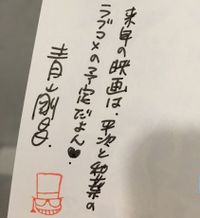 来年の映画は、平次と和葉の
ラブコメの予定だよん♥
青山剛昌.